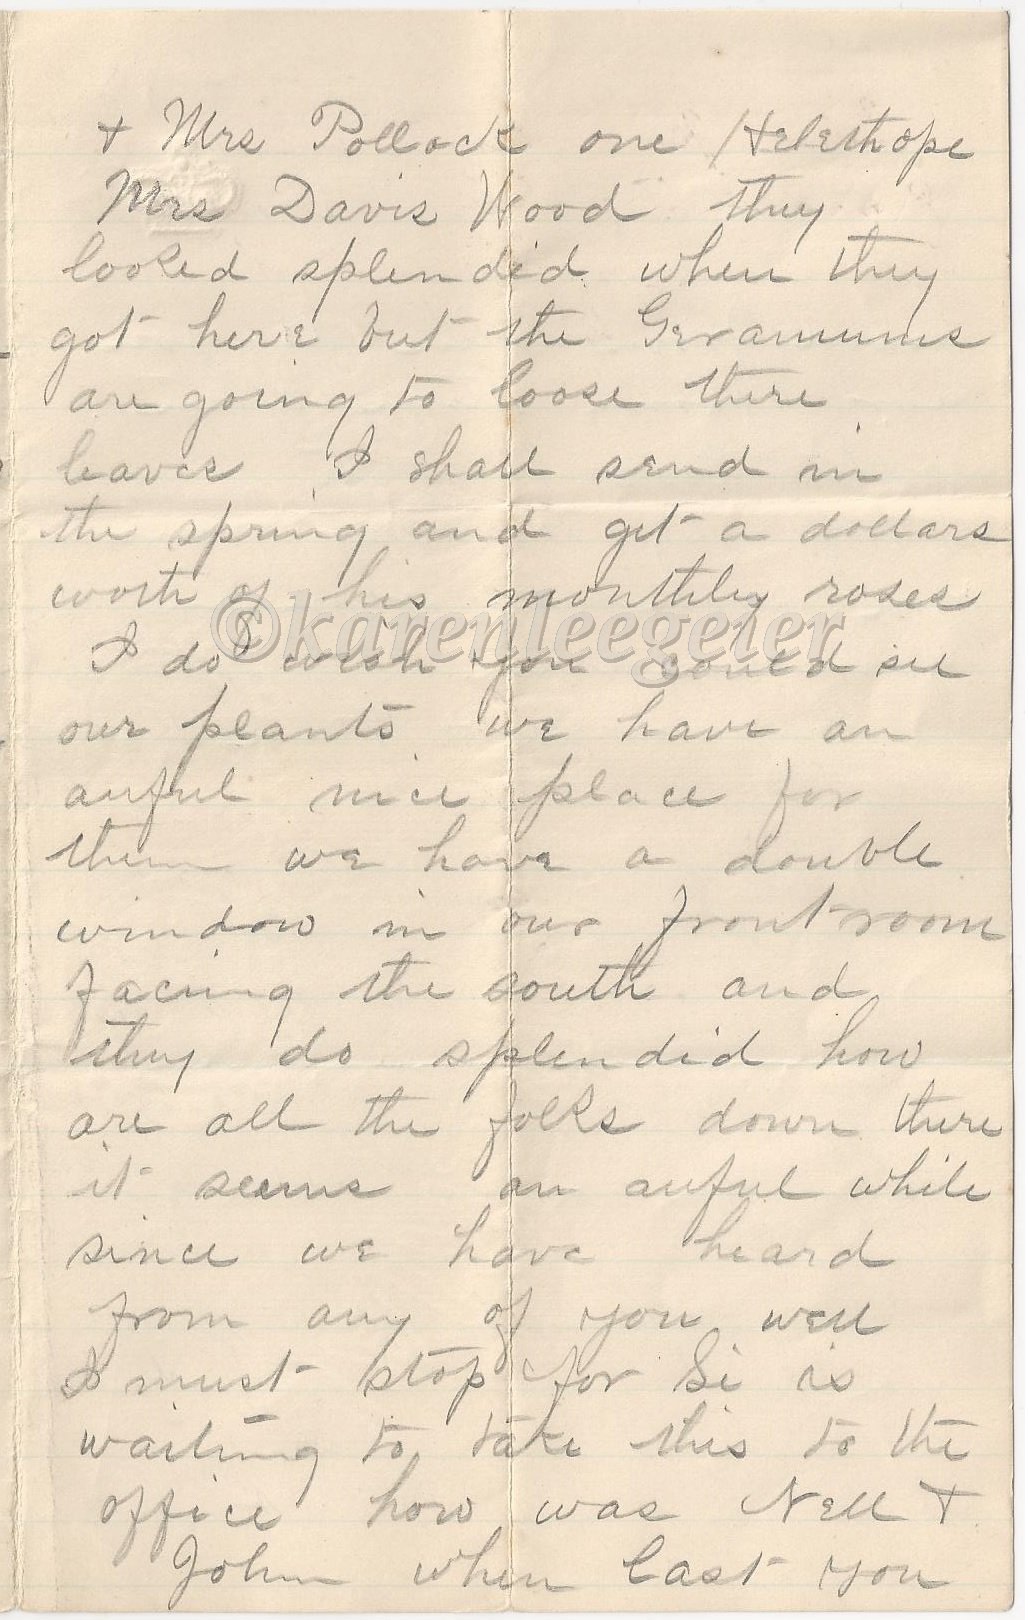 + Mrs Pollock one Heleithope
Mrs Davis Wood they
looked splendid when they
got here but the Geraniums
are going to loose there
leaves I shall send in
the spring and get a dollars
worth of his monthly roses
©karenleegeier
I do wish you could see
our plants we have an
auful nice place for
them we have a double
window in our front room
facing the south and
they do splendid how
are all the folks down there
it seems an auful while
since we have heard
from any of you well
I must stop for Si is
waiting to take this to the
office how was Nell +
John when last you